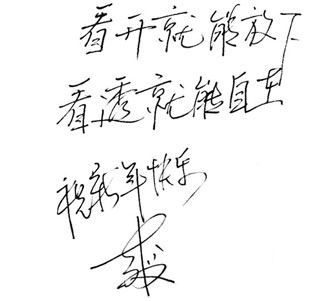 看开就能放下
看透就能自在
祝新年快乐